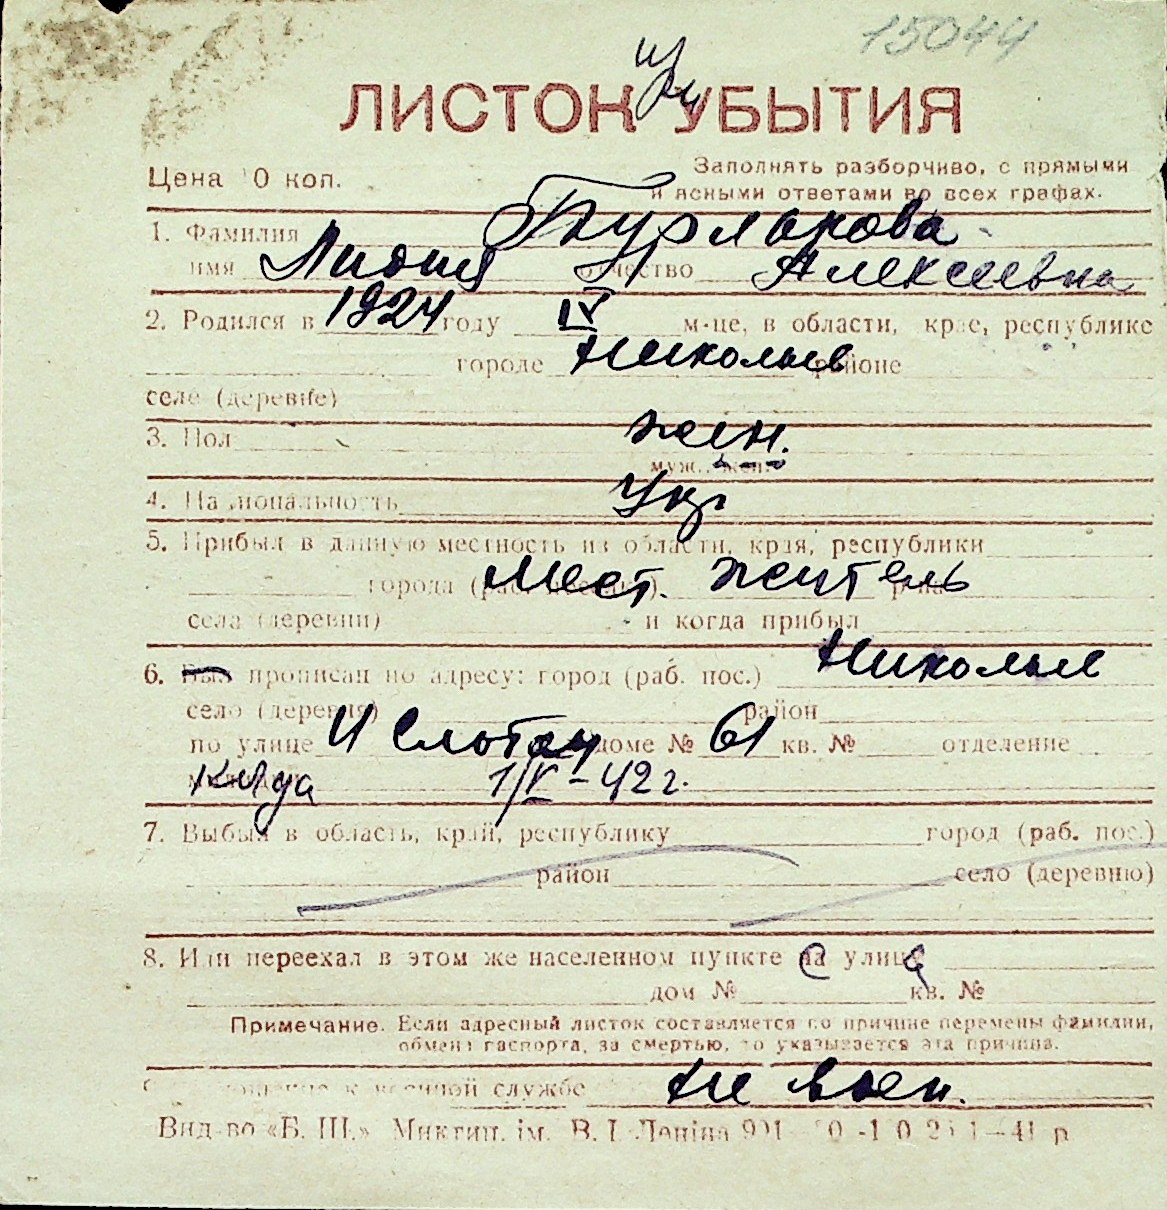 15044
ЛИСТОК УБЫТИЯ
при
Цена 10 коп.
Заполнять разборчиво, с прямыми
и ясными ответами во всех графах.
1. Фамилия Бурлакова
имя Лидия отчество Алексеевна
2. Родился в 1924 году IV м-це, в области, крае, республике
городе Николаев районе
селе (деревне)
3. Пол жен.
муж., жен.
4. Национальность Укр
5. Прибыл в данную местность из области, края, республики
города (раб. поселка) Мест. житель р-на
села (деревни) и когда прибыл
6. Был прописан по адресу: город (раб. пос.) Николаев
село (деревня) район
по улице доме № 61 кв. № отделение
Когда 1/V-42 г.
7. Выбыл в область, край, республику город (раб. пос.)
район село (деревню)
8. Или переехал в этом же населенном пункте на улицу
дом № кв. №
Примечание. Если адресный листок составляется по причине перемены фамилии,
обмена паспорта, за смертью, то указывается эта причина.
к военной службе не воен.
Вид-во «Б. Ш.» Миктип. ім. В. І. Леніна